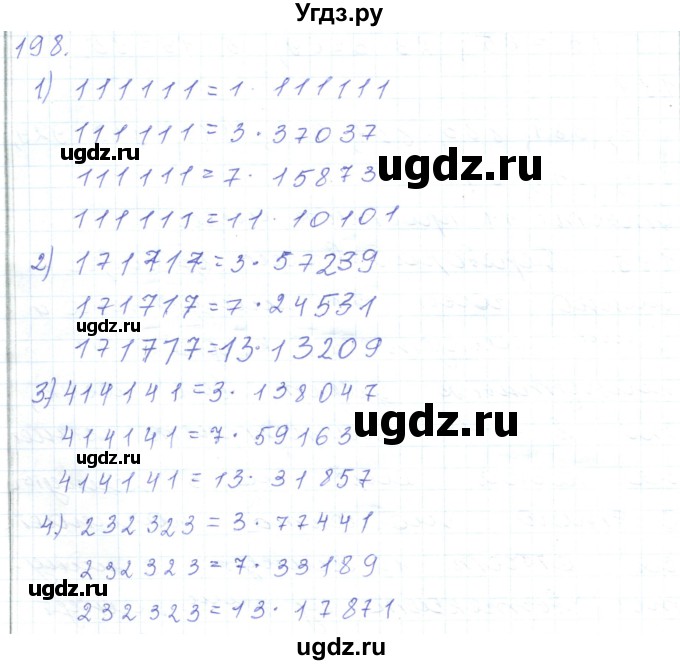 Угдз.ру
198.
1) 111111 = 1 · 111111
111111 = 3 · 37037
ugdz.ru
ugdz.ru
111111 = 7 · 15873
111111 = 11 · 10101
2) 171717 = 3 · 57239
171717 = 7 · 24531
ugdz.ru
171717 = 13 · 13209
3) 414141 = 3 · 138047
414141 = 7 · 59163
ugdz.ru
ugdz.ru
414141 = 13 · 31857
4) 232323 = 3 · 77441
232323 = 7 · 33189
ugdz.ru
232323 = 13 · 17871
ugdz.ru
ugdz.ru